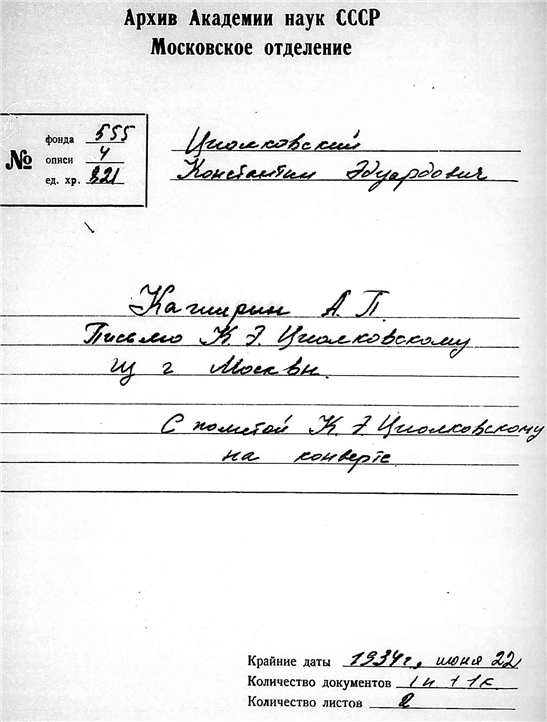 Архив Академии наук СССР
Московское отделение
№
фонда 555
описи 4
ед. хр. 321
Циолковский
Константин Эдуардович
Каширин А. П.
Письмо К. Э. Циолковскому
из г Москвы.
С пометой К. Э. Циолковскому
на конверте
Крайние даты 1934г, июня 22
Количество документов 1п + 1к.
Количество листов 2